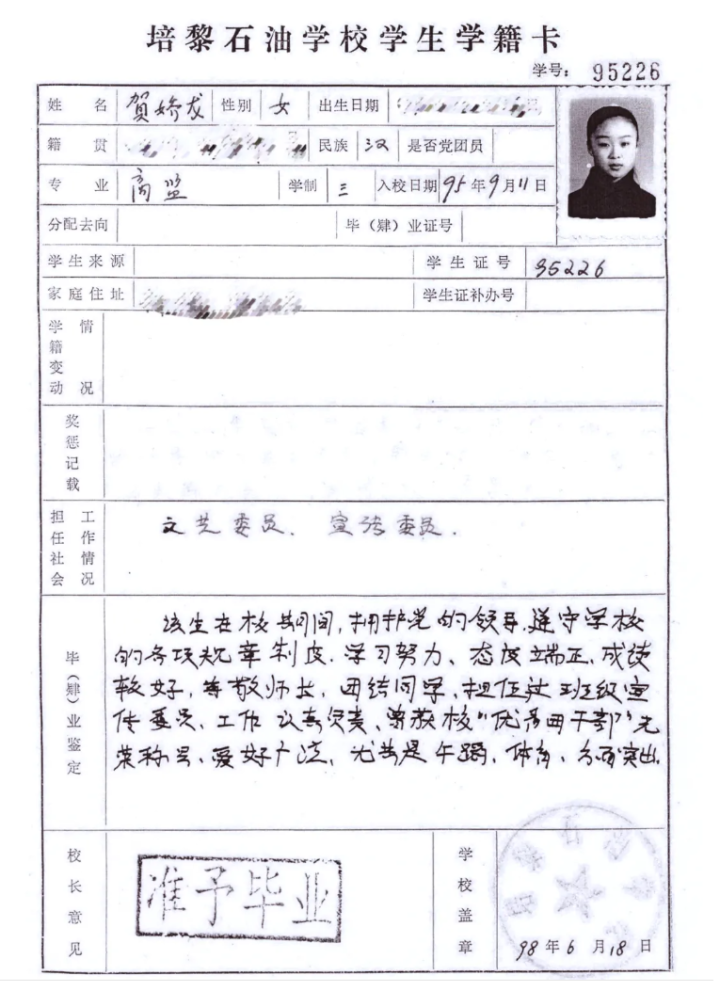 培黎石油学校学生学籍卡
学号: 95226
姓名 贺娇龙 性别 女 出生日期
籍贯 民族 汉 是否党团员
专业 商监 学制 三 入校日期 95年9月11日
分配去向 毕（肆）业证号
学生来源 学生证号 95226
家庭住址 学生证补办号
学籍变动情况
奖惩记载
担任社会工作情况 文艺委员、宣传委员.
毕（肆）业鉴定
该生在校期间,拥护党的领导,遵守学校
的各项规章制度.学习努力、态度端正,成绩
较好,尊敬师长,团结同学,担任过班级宣
传委员、工作认真负责、曾获校“优秀团干部”光
荣称号、爱好广泛,尤其是午蹈,体育,方面突出.
校长意见 准予毕业
学校盖章 98年6月18日